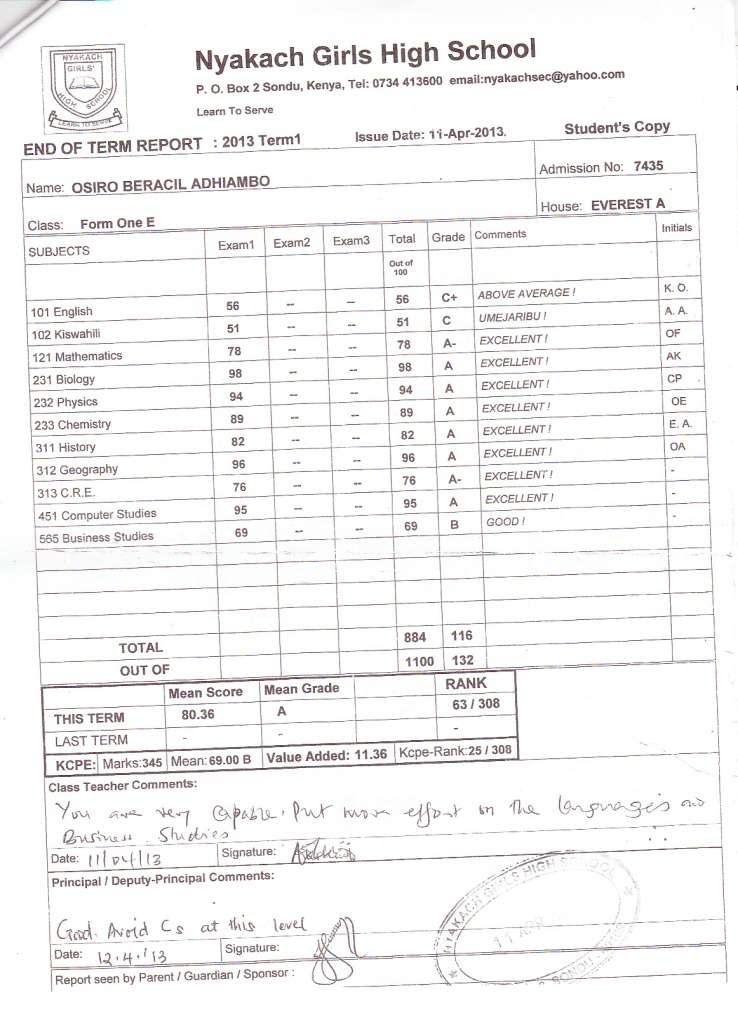 NYAKACH
GIRLS'
HIGH SCHOOL
LEARN TO SERVE
Nyakach Girls High School
P. O. Box 2 Sondu, Kenya, Tel: 0734 413600 email:nyakachsec@yahoo.com
Learn To Serve
END OF TERM REPORT : 2013 Term1 Issue Date: 11-Apr-2013. Student's Copy
Name: OSIRO BERACIL ADHIAMBO Admission No: 7435
Class: Form One E House: EVEREST A
SUBJECTS Exam1 Exam2 Exam3 Total Grade Comments Initials
Out of
100
101 English 56 -- -- 56 C+ ABOVE AVERAGE ! K. O.
102 Kiswahili 51 -- -- 51 C UMEJARIBU ! A. A.
121 Mathematics 78 -- -- 78 A- EXCELLENT ! OF
231 Biology 98 -- -- 98 A EXCELLENT ! AK
232 Physics 94 -- -- 94 A EXCELLENT ! CP
233 Chemistry 89 -- -- 89 A EXCELLENT ! OE
311 History 82 -- -- 82 A EXCELLENT ! E. A.
312 Geography 96 -- -- 96 A EXCELLENT ! OA
313 C.R.E. 76 -- -- 76 A- EXCELLENT ! -
451 Computer Studies 95 -- -- 95 A EXCELLENT ! -
565 Business Studies 69 -- -- 69 B GOOD ! -
TOTAL 884 116
OUT OF 1100 132
Mean Score Mean Grade RANK
THIS TERM 80.36 A 63 / 308
LAST TERM - - -
KCPE: Marks:345 Mean:69.00 B Value Added: 11.36 Kcpe-Rank:25 / 308
Class Teacher Comments:
You are very capable. Put more effort on the languages and
Business Studies
Date: 11/04/13 Signature:
Principal / Deputy-Principal Comments:
Good. Avoid Cs at this level
Date: 12.4.'13 Signature:
NYAKACH GIRLS HIGH SCHOOL
11 APR
SONDU
Report seen by Parent / Guardian / Sponsor :